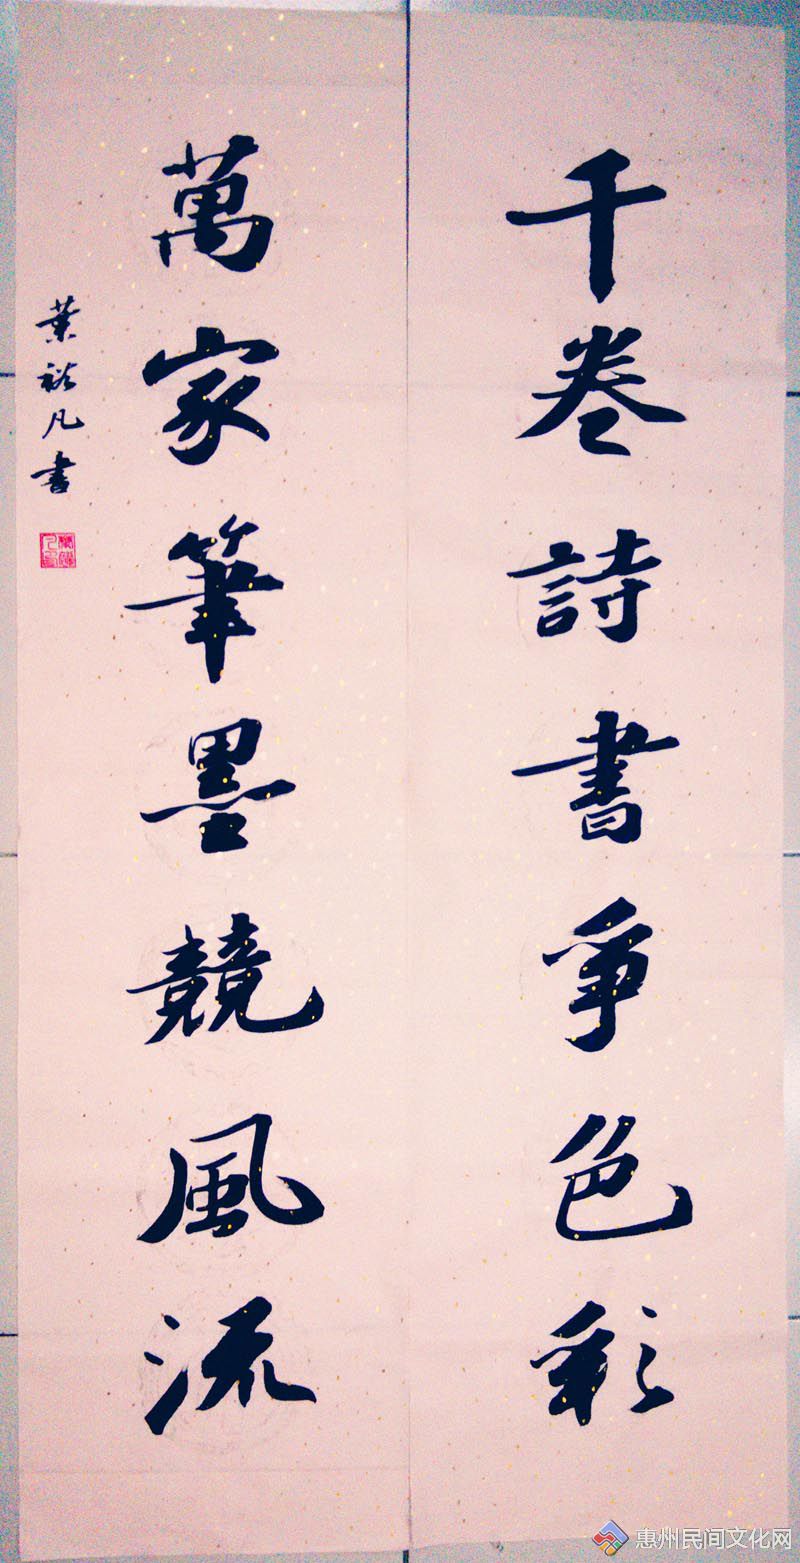 千卷詩書爭色彩
萬家筆墨競風流
葉裕凡書
惠州民间文化网